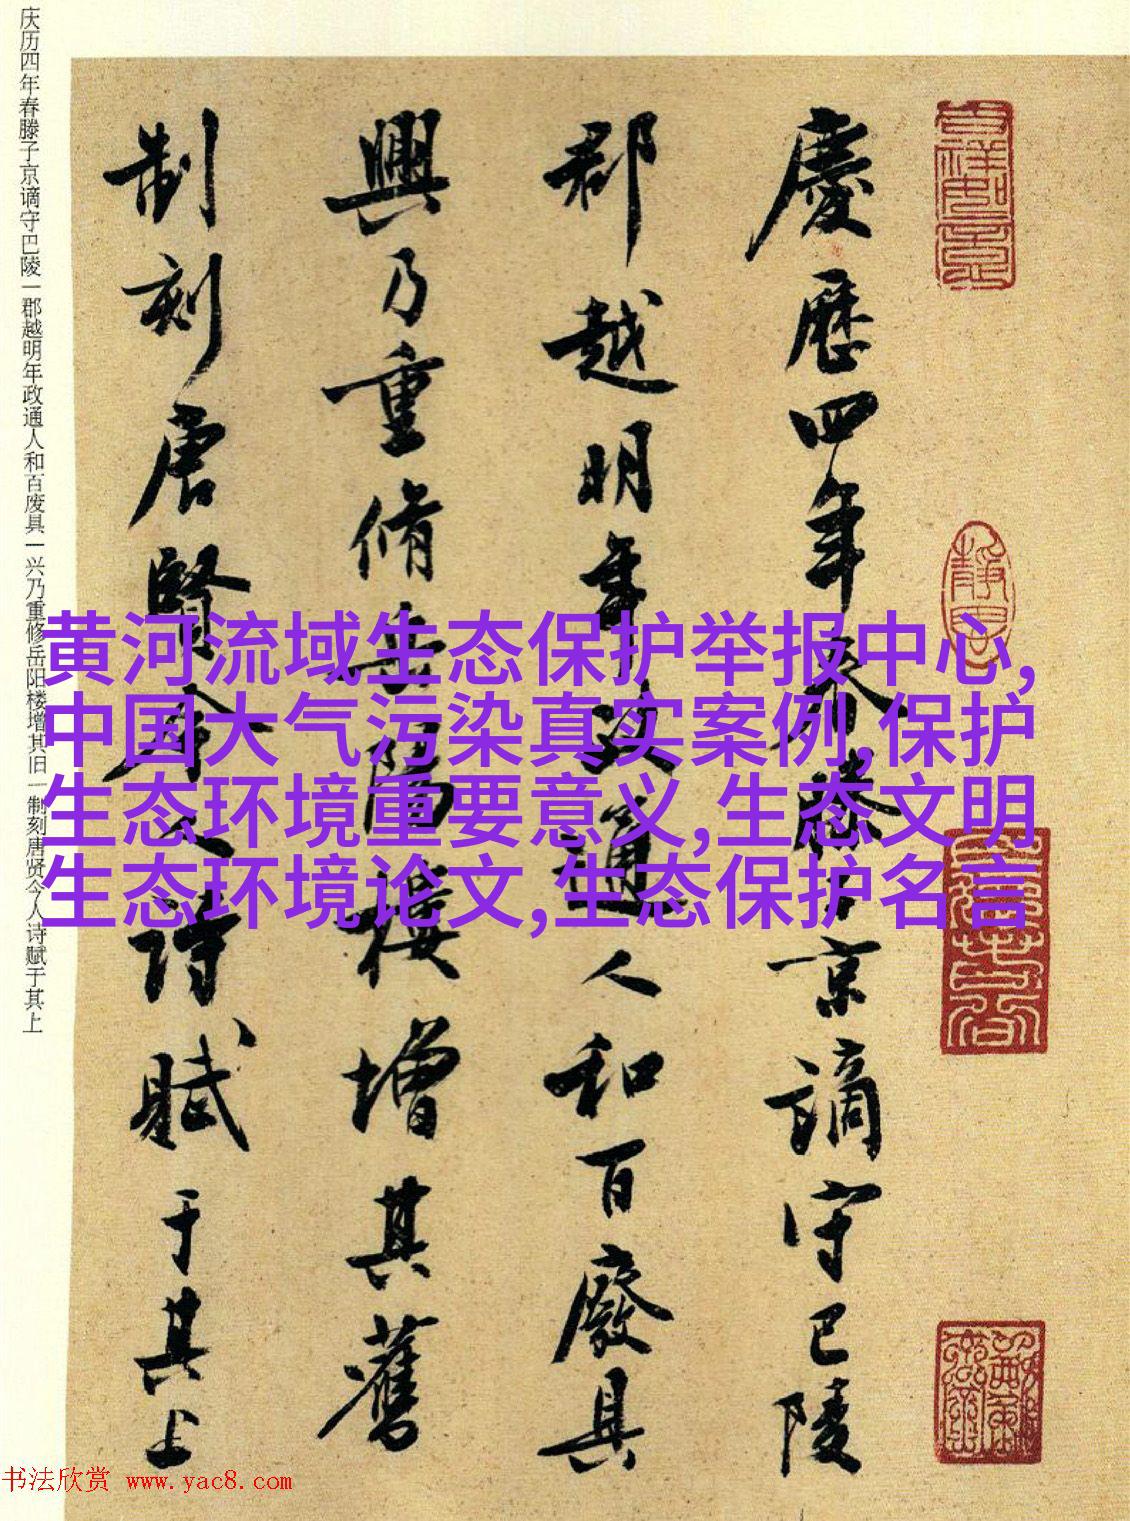 庆历四年春滕子京谪守巴陵一郡越明年政通人和百废具一兴乃重修岳阳楼增其旧一制刻唐贤今人诗赋于其上
慶歷四年春滕子京謫守巴陵
郡越明年政通人和百廢具
興乃重脩岳陽樓增其舊
制刻唐賢今人詩賦于其上
黄河流域生态保护举报中心,
中国大气污染真实案例,保护
生态环境重要意义,生态文明
生态环境论文,生态保护名言
书法欣赏 www.yac8.com